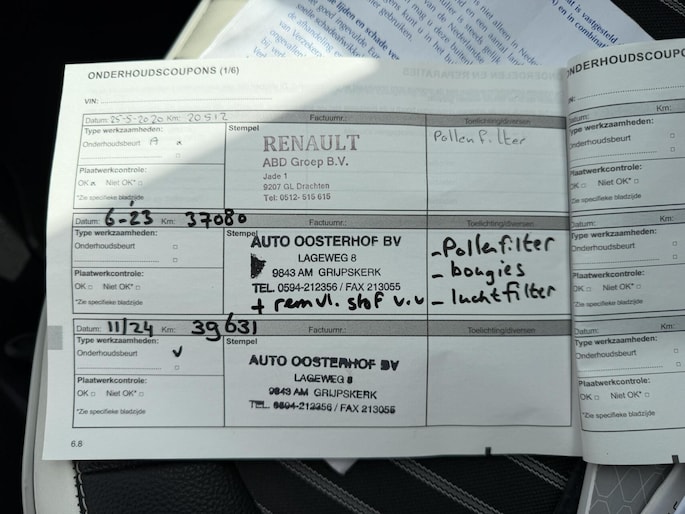 ONDERHOUDSCOUPONS (1/6)
VIN:
Datum: 25-5-2020 Km: 20512 Factuurnr.: Toelichting/diversen
Type werkzaamheden:
Onderhoudsbeurt A x
Plaatwerkcontrole:
OK x Niet OK*
*Zie specifieke bladzijde
Stempel
RENAULT
ABD Groep B.V.
Jade 1
9207 GL Drachten
Tel: 0512- 515 615
Pollenfilter
Datum: 6-23 Km: 37080 Factuurnr.: Toelichting/diversen
Type werkzaamheden:
Onderhoudsbeurt
Plaatwerkcontrole:
OK Niet OK*
*Zie specifieke bladzijde
Stempel
AUTO OOSTERHOF BV
LAGEWEG 8
9843 AM GRIJPSKERK
TEL. 0594-212356 / FAX 213055
+ remvl. stof v.v
- Pollenfilter
- bougies
- luchtfilter
Datum: 11/24 Km: 39631 Factuurnr.: Toelichting/diversen
Type werkzaamheden:
Onderhoudsbeurt v
Plaatwerkcontrole:
OK Niet OK*
*Zie specifieke bladzijde
Stempel
AUTO OOSTERHOF BV
LAGEWEG 8
9843 AM GRIJPSKERK
TEL. 0594-212356 / FAX 213055
6.8
ONDERHOUDSCOUPO
VIN:
Datum: Km:
Type werkzaamheden:
Onderhoudsbeurt
Plaatwerkcontrole:
OK Niet OK*
*Zie specifieke bladzijde
Datum: Km:
Type werkzaamheden:
Onderhoudsbeurt
Plaatwerkcontrole:
OK Niet OK*
*Zie specifieke bladzijde
Datum: Km:
Type werkzaamheden:
Onderhoudsbeurt
Plaatwerkcontrole:
OK Niet OK*
*Zie specifieke bladzijde